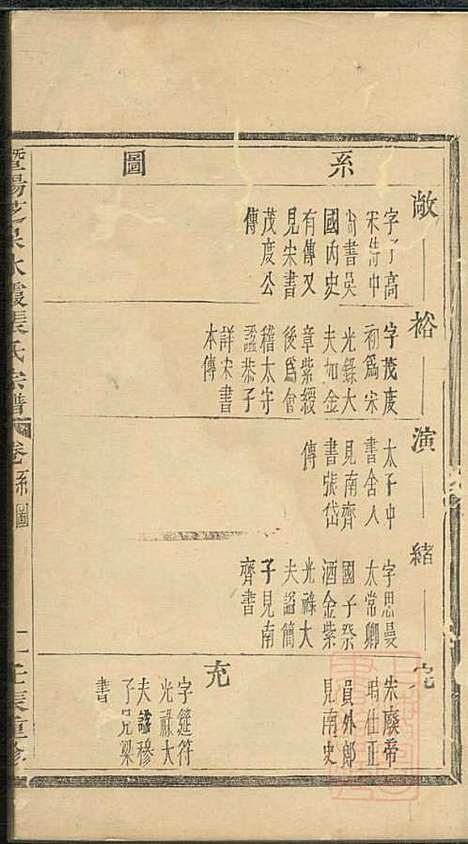 系圖
敞
字　高
宋侍中
尚書吳
國內史
有傳又
見宋書
茂度公
傳
裕
字茂度
初爲宋
光錄大
夫加金
章紫綬
後爲會
稽太守
諡恭子
詳宋書
本傳
演
太子中
書舍人
見南齊
書張岱
傳
緒
字思曼
太常卿
國子祭
酒金紫
光祿大
夫謚簡
子見南
齊書
完
宋廢帝
時仕正
員外郎
見南史
充
字延符
光祿大
夫諡穆
子見梁
書
暨陽芝泉水霞張氏宗譜
卷 系圖
壬辰重修